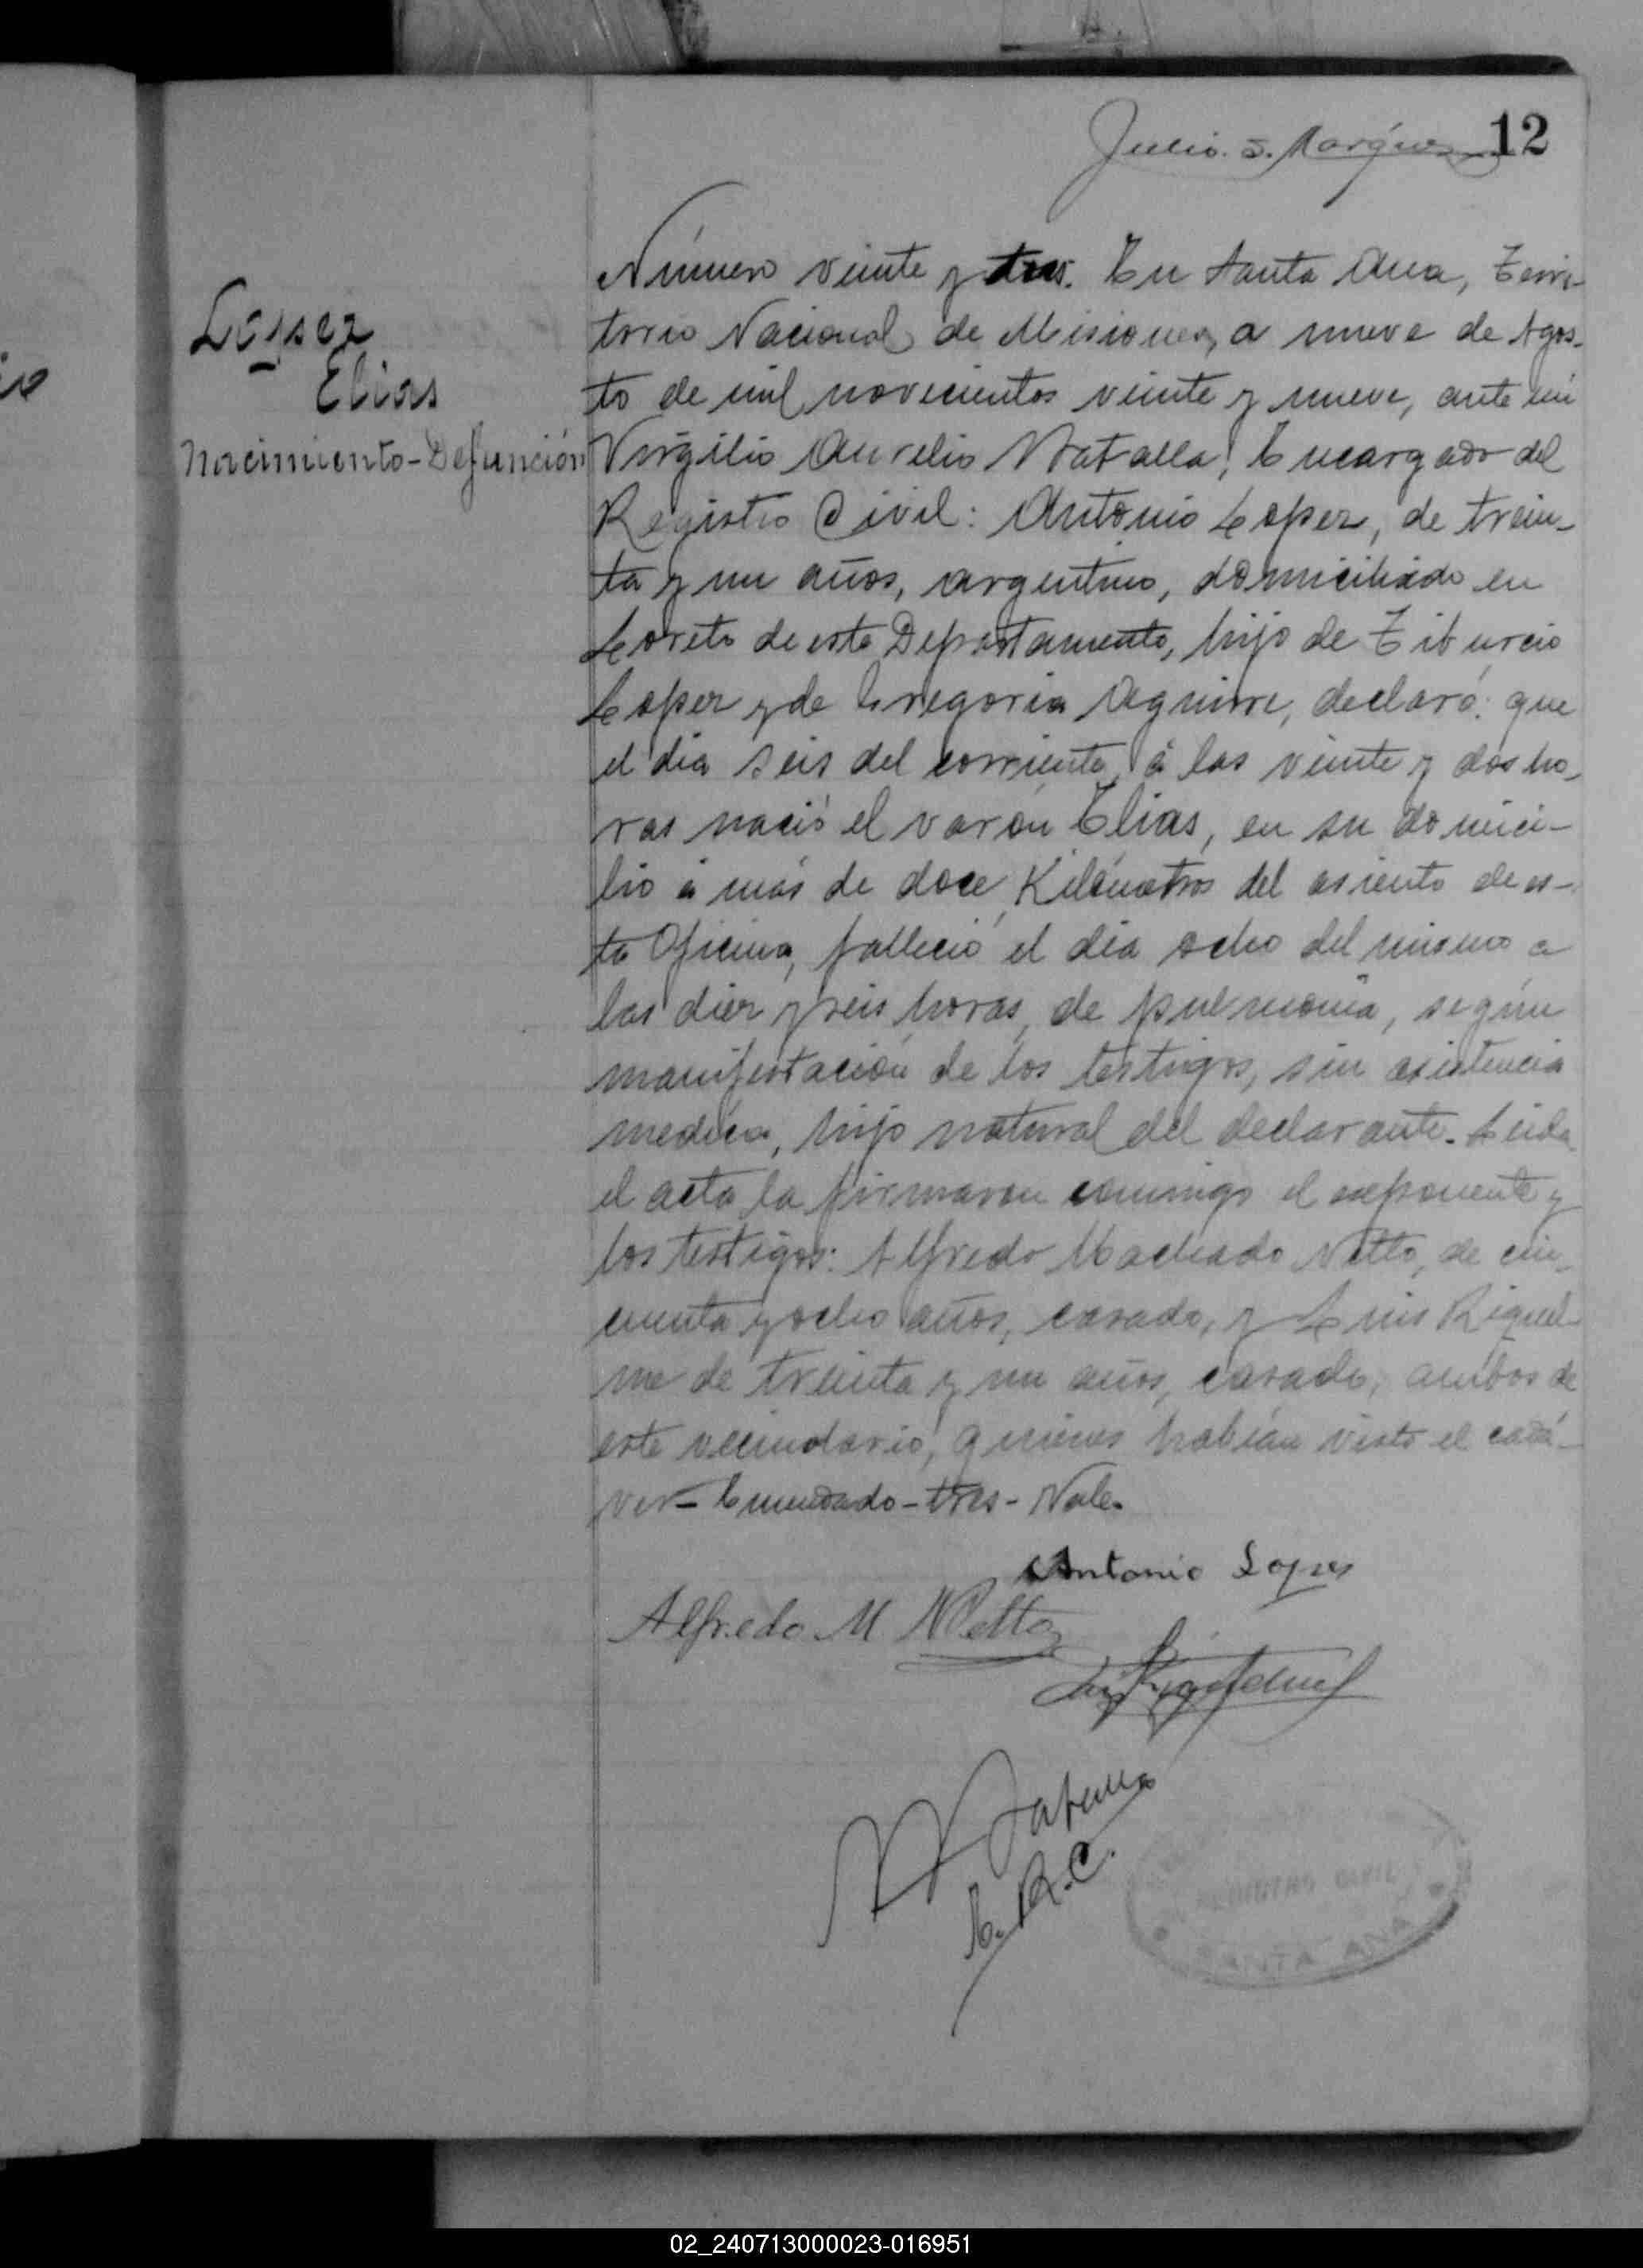 Julio. S. Márquez 12
López
Elias
Nacimiento-Defunción
Número veinte y tres. En Santa Ana, Terri-
torio Nacional de Misiones, a nueve de Agos-
to de mil novecientos veinte y nueve, ante mi
Virgilio Aurelio Encargado del
Registro Civil: Antonio Lopez, de trein-
ta y un años, argentino, domiciliado en
Loreto de este Departamento, hijo de Tiburcio
Lopez y de Gregoria Aguirre, declaró: que
el día seis del corriente, á las veinte y dos ho-
ras nació el varón Elias, en su domici-
lio á más de doce Kilómetros del asiento de es-
ta Oficina, falleció el día ocho del mismo a
las diez y seis horas, de pulmonía, según
manifestación de los testigos, sin asistencia
medica, hijo natural del declarante. Leida
el acta la firmaron conmigo el exponente y
los testigos: Alfredo Machado Netto, de cin-
cuenta y ocho años, casado, y Luis Riquel-
me de treinta y un años, casado, ambos de
este vecindario, quienes habían visto el cadá-
ver-Enmendado-tres-Vale.
Antonio Lopes
Alfredo M. Netto
E. R. C.
REGISTRO CIVIL
SANTA ANA
02_240713000023-016951